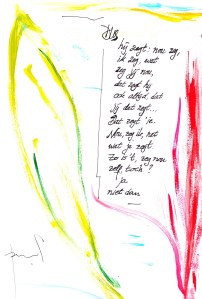 hij zegt: nou zeg,
ik zeg, wat
zeg jij nou,
dat zegt hij
ook altijd, dat
jij dat zegt...
Dat zegt 'ie.
Nou, zeg ik, net
wat je zegt.
Zo is 't, zeg nou
zelf, toch?
ja
niet dan